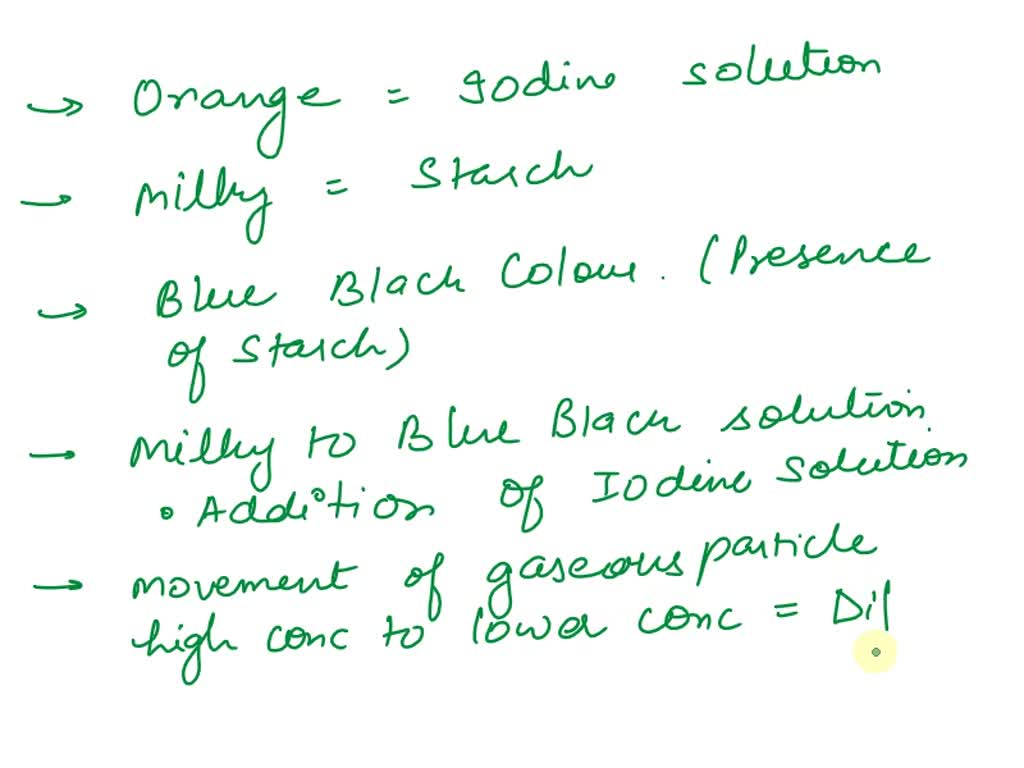 → Orange = Iodine solution
→ Milky = Starch
→ Blue Black Colour. (Presence
of Starch)
→ Milky to Blue Black solution.
• Addition of Iodine solution
→ movement of gaseous particle
high conc to lower conc = Dif